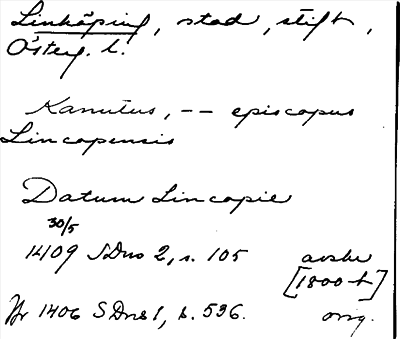 Linköping, stad, stift,
Österg. l.
Kanutus, -- episcopus
Lincopensis
Datum Lincopie
30/5
1409 SDns 2, s. 105 avskr
[1800-t]
Jfr 1406 SDns 1, s. 536. orig.